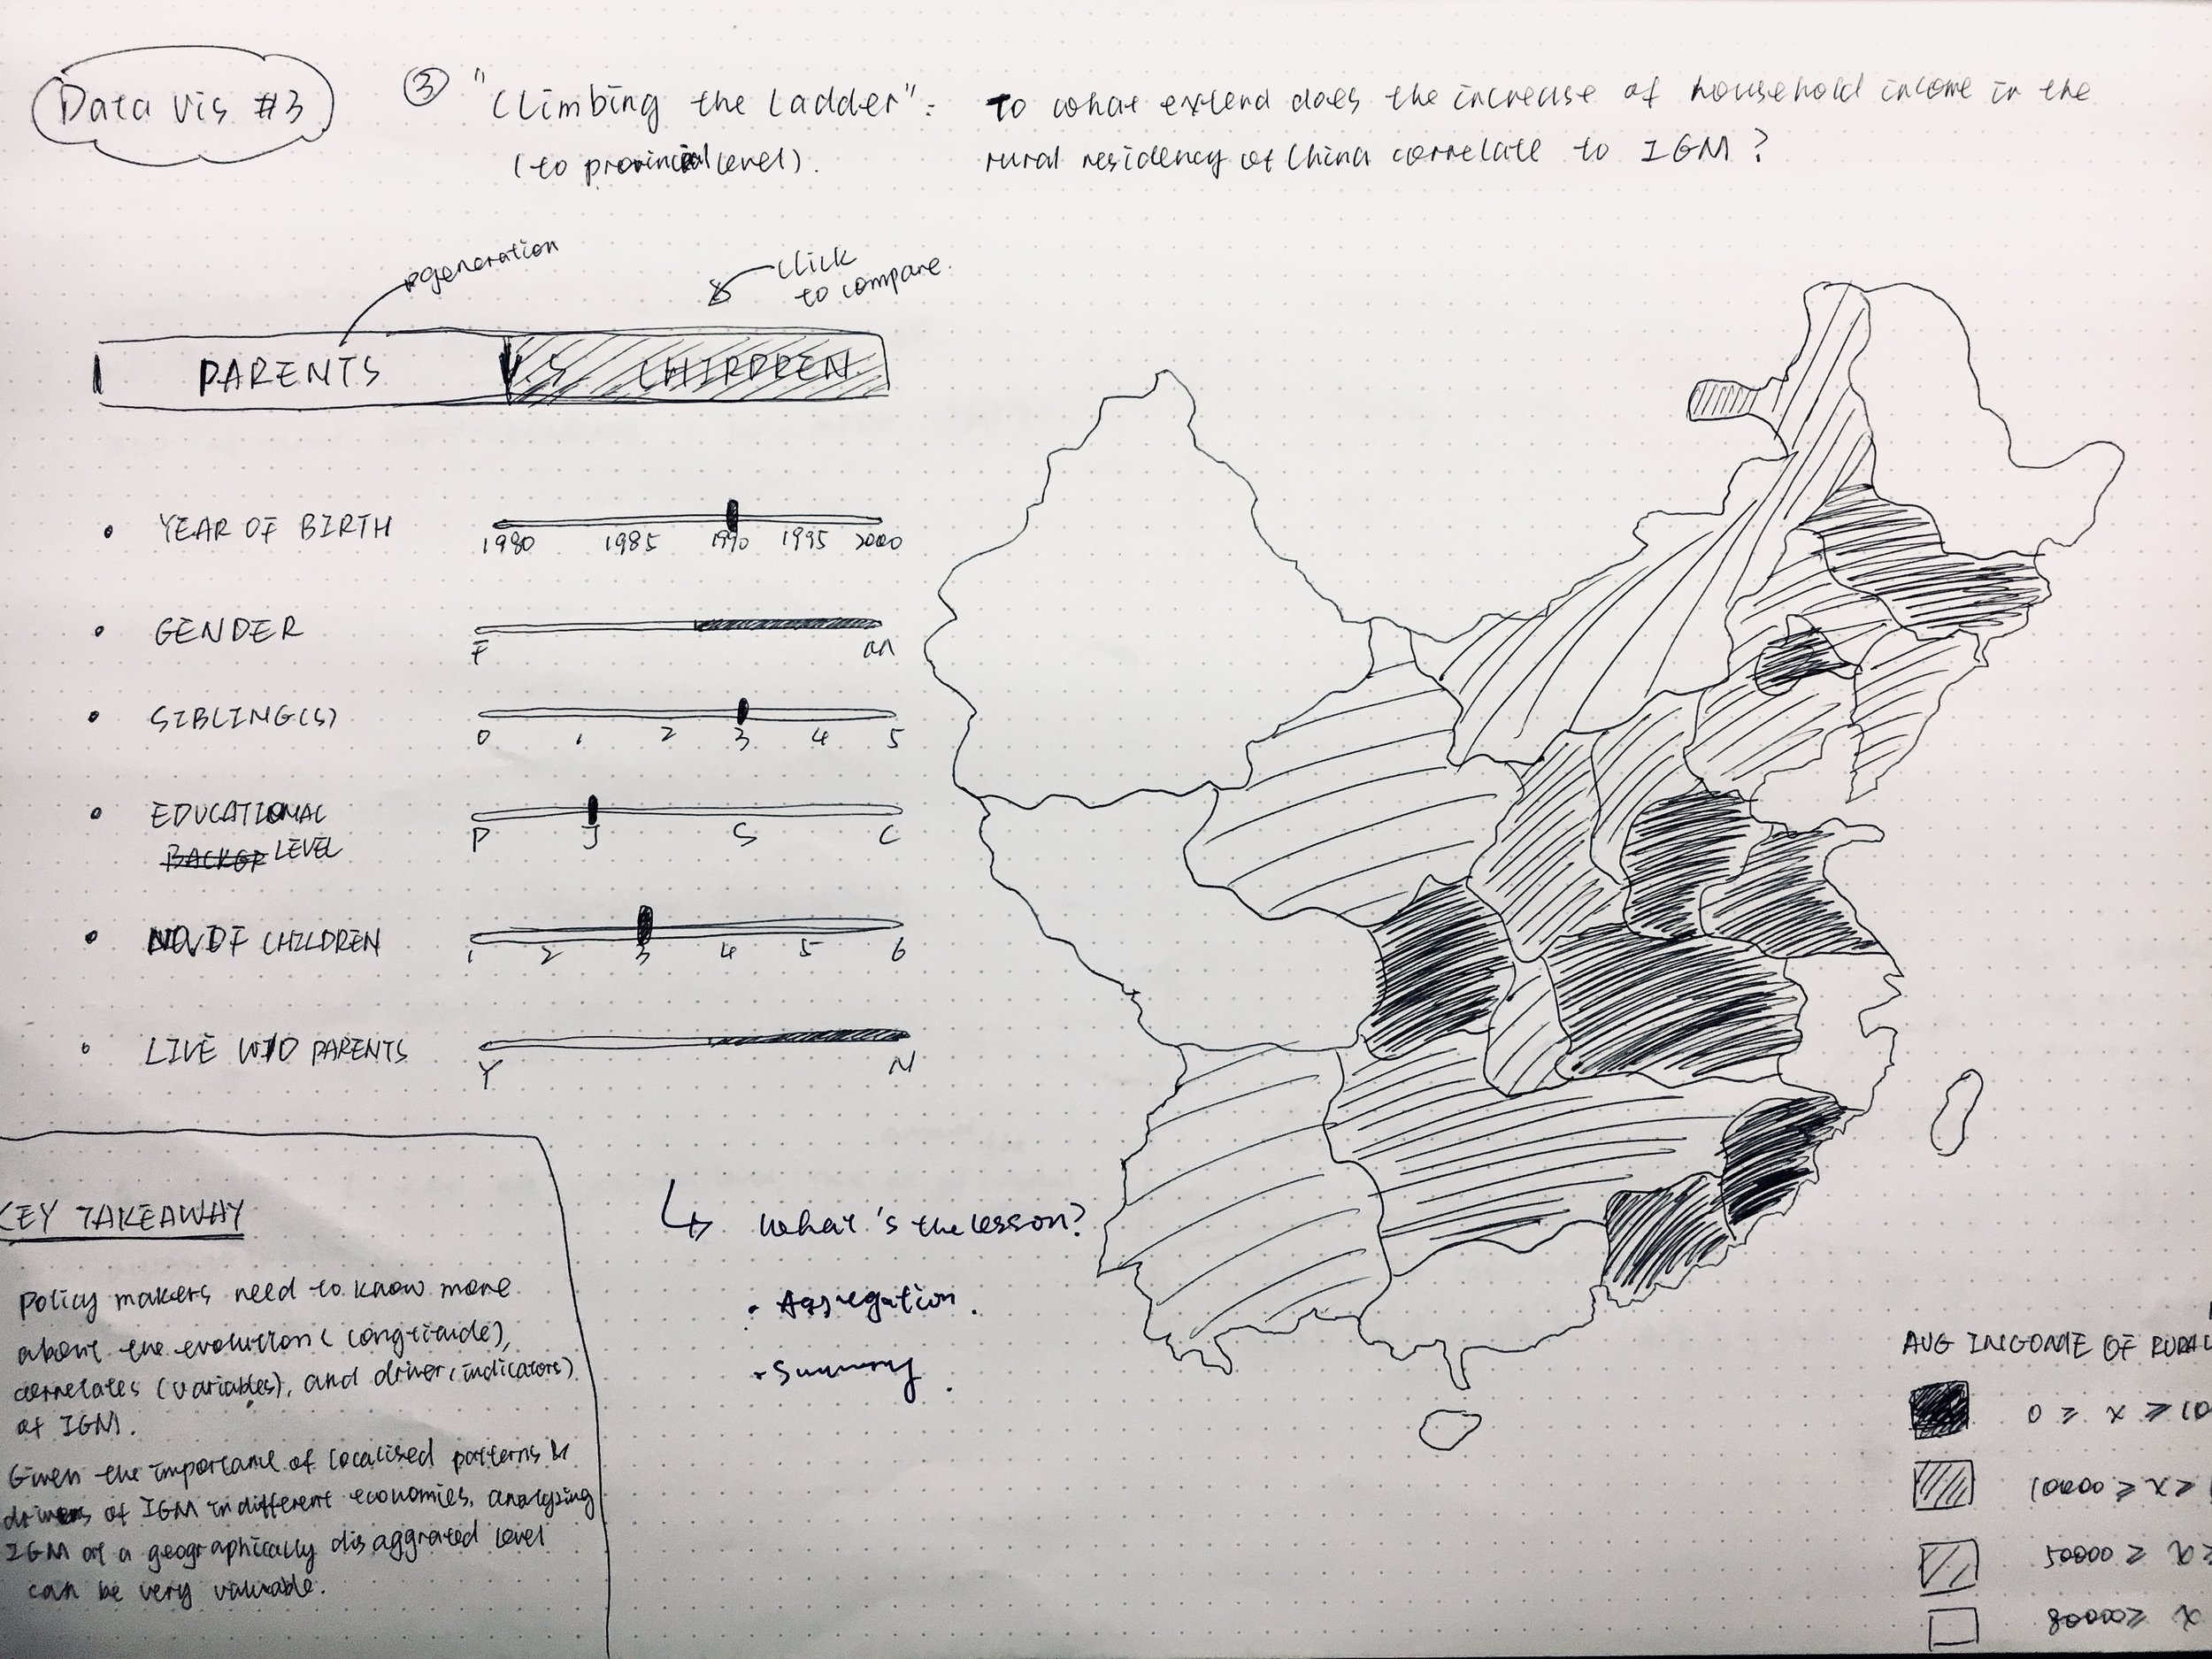 Data Vis #3
③ "Climbing the Ladder":
(to provincial level).
To what extend does the increase of household income in the
rural residency of China correlate to IGM?
generation
click
to compare.
PARENTS V.S CHIRDREN
• YEAR OF BIRTH
1980 1985 1990 1995 2000
• GENDER
F M
• SIBLING(S)
0 1 2 3 4 5
• EDUCATIONAL
BACKGR LEVEL
P J S C
• NO. OF CHILDREN
1 2 3 4 5 6
• LIVE W/O PARENTS
Y N
KEY TAKEAWAY
Policy makers need to know more
about the evolution (longtitude),
correlates (variables), and driver (indicators)
of IGM.
Given the importance of localised patterns &
drivers of IGM in different economies, analyzing
IGM at a geographically disaggrated level
can be very valuable.
↳ What's the lesson?
• Aggregation.
• Summary.
AVG INCOME OF RURAL
0 ≥ x ≥ 10
10000 ≥ x ≥
50000 ≥ x ≥
80000 ≥ x